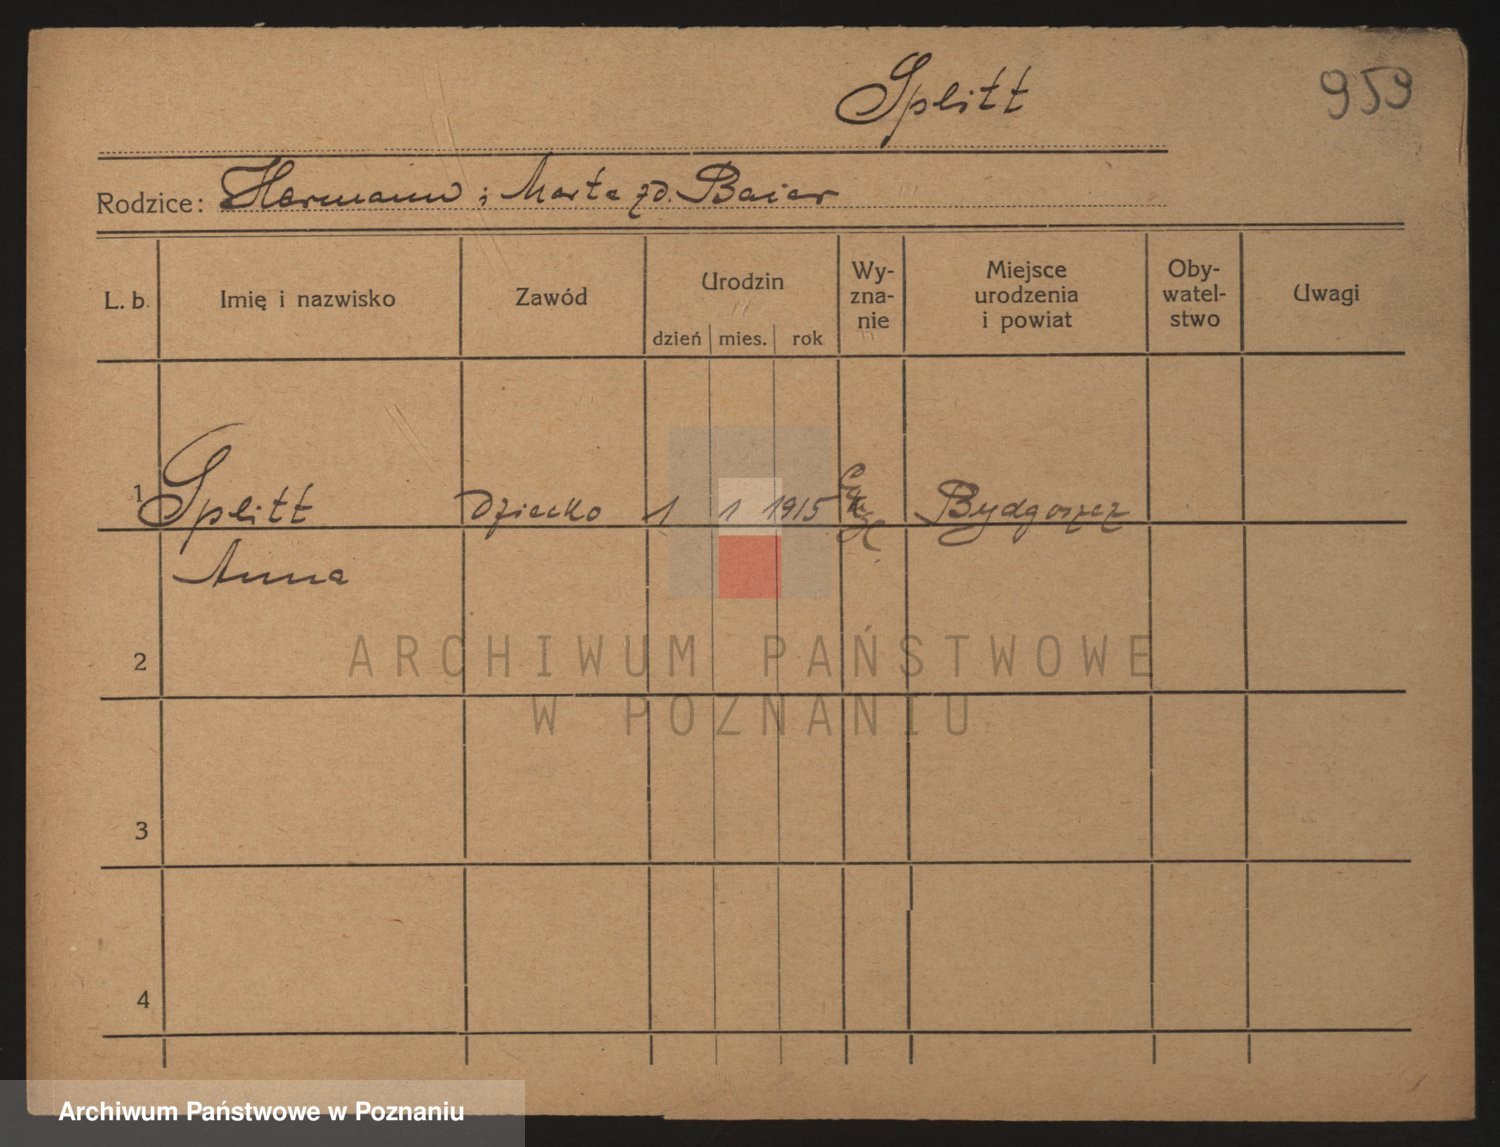 Splitt
959
Rodzice: Hermann i Marta zd. Baier
L. b. Imię i nazwisko Zawód Urodzin Wy-zna-nie Miejsce urodzenia i powiat Oby-watel-stwo Uwagi
dzień mies. rok
1 Splitt Dziecko 1 1 1915 Bydgoszcz
Anna
2
ARCHIWUM PAŃSTWOWE
W POZNANIU
3
4
Archiwum Państwowe w Poznaniu